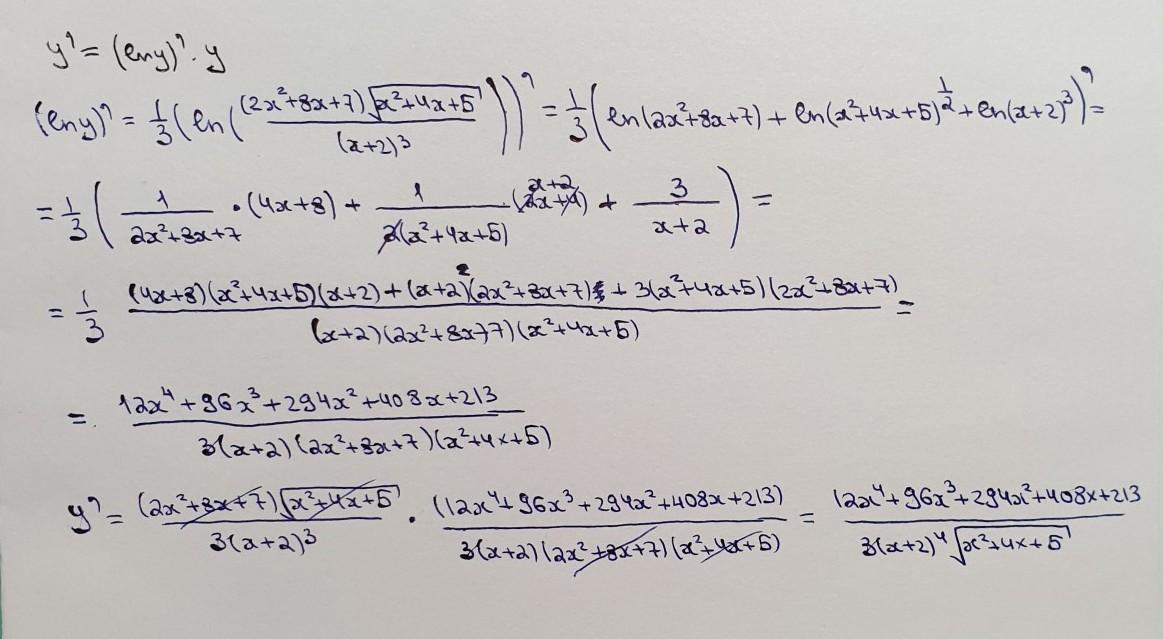 y' = (ln y)' · y
(ln y)' = 1/3 (ln((2x²+8x+7)√(x²+4x+5) / (x+2)³))' = 1/3 (ln(2x²+8x+7) + ln(x²+4x+5)^(1/2) + ln(x+2)³)' =
= 1/3 (1/(2x²+8x+7) · (4x+8) + 1/(2(x²+4x+5)) (2x+4) x+2 + 3/(x+2)) =
= 1/3 ((4x+8)(x²+4x+5)(x+2) + (x+2)²(2x²+8x+7) + 3(x²+4x+5)(2x²+8x+7)) / ((x+2)(2x²+8x+7)(x²+4x+5)) =
= (12x⁴+96x³+294x²+408x+213) / (3(x+2)(2x²+8x+7)(x²+4x+5))
y' = ((2x²+8x+7)√(x²+4x+5)) / (3(x+2)³) · (12x⁴+96x³+294x²+408x+213) / (3(x+2)(2x²+8x+7)(x²+4x+5)) = (12x⁴+96x³+294x²+408x+213) / (3(x+2)⁴√(x²+4x+5))